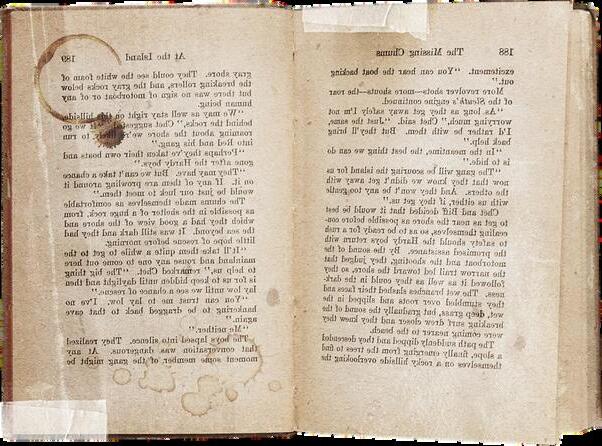 188 The Missing Chums
excitement. "You can hear the boat backing
out."
More revolver shots—more shouts—the roar
of the Sleuth's engine continued.
"As long as they get away safely I'm not
worrying much," Chet said. "Just the same,
I'd rather be with them. But they'll bring
back help."
"In the meantime, the best thing we can do
is to hide."
"The gang will be scouring the island for us
now that they know we didn't get away with
the others. And they won't be any too gentle
with us either, if they get us."
Chet and Biff decided that it would be best
to get as near the shore as possible before con-
cealing themselves, so as to be ready for a rush
to safety should the Hardy boys return with
the promised assistance. By the sound of the
motorboat and the shooting, they judged that
the narrow trail led toward the shore, so they
followed it as well as they could in the dark-
ness. The wet branches slashed their faces and
they stumbled over roots and slipped in the
wet, deep grass, but gradually the sound of the
breaking surf drew closer and they knew they
were coming nearer to the beach.
The path suddenly dipped and they descended
a slope, finally emerging from the trees to find
themselves on a rocky hillside overlooking the
At the Island 189
gray shore. They could see the white foam of
the breaking rollers, and the gray rocks below
but there was no sign of motorboat or of any
human being.
"We may as well stay right on the hillside
behind the rocks," Chet suggested. "If we go
roaming about the shore we're likely to run
into Red and his gang."
"Perhaps they've taken their own boats and
gone after the Hardy boys."
"They may have. But we can't take a chance
on it. If any of them are prowling around it
would be just our luck to meet them."
The chums made themselves as comfortable
as possible in the shelter of a huge rock, from
which they had a good view of the shore and
the sea beyond. It was still dark and they had
little hope of rescue before morning.
"It'll take them quite a while to get to the
mainland and rouse any one to come out here
to help us," remarked Chet. "The big thing
is for us to keep hidden until daylight and then
lay low until we see a chance of rescue."
"You can trust me to lay low. I've no
hankering to be dragged back to that cave
again."
"Me neither."
The boys lapsed into silence. They realized
that conversation was dangerous. At any
moment some member of the gang might be